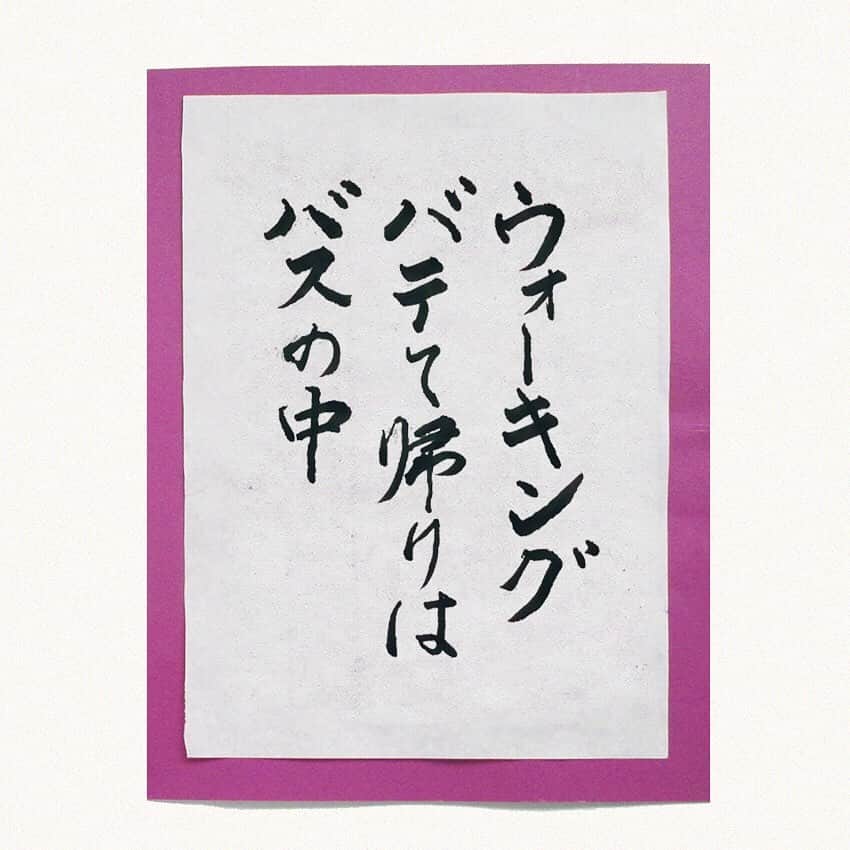 ウォーキング
バテて帰りは
バスの中